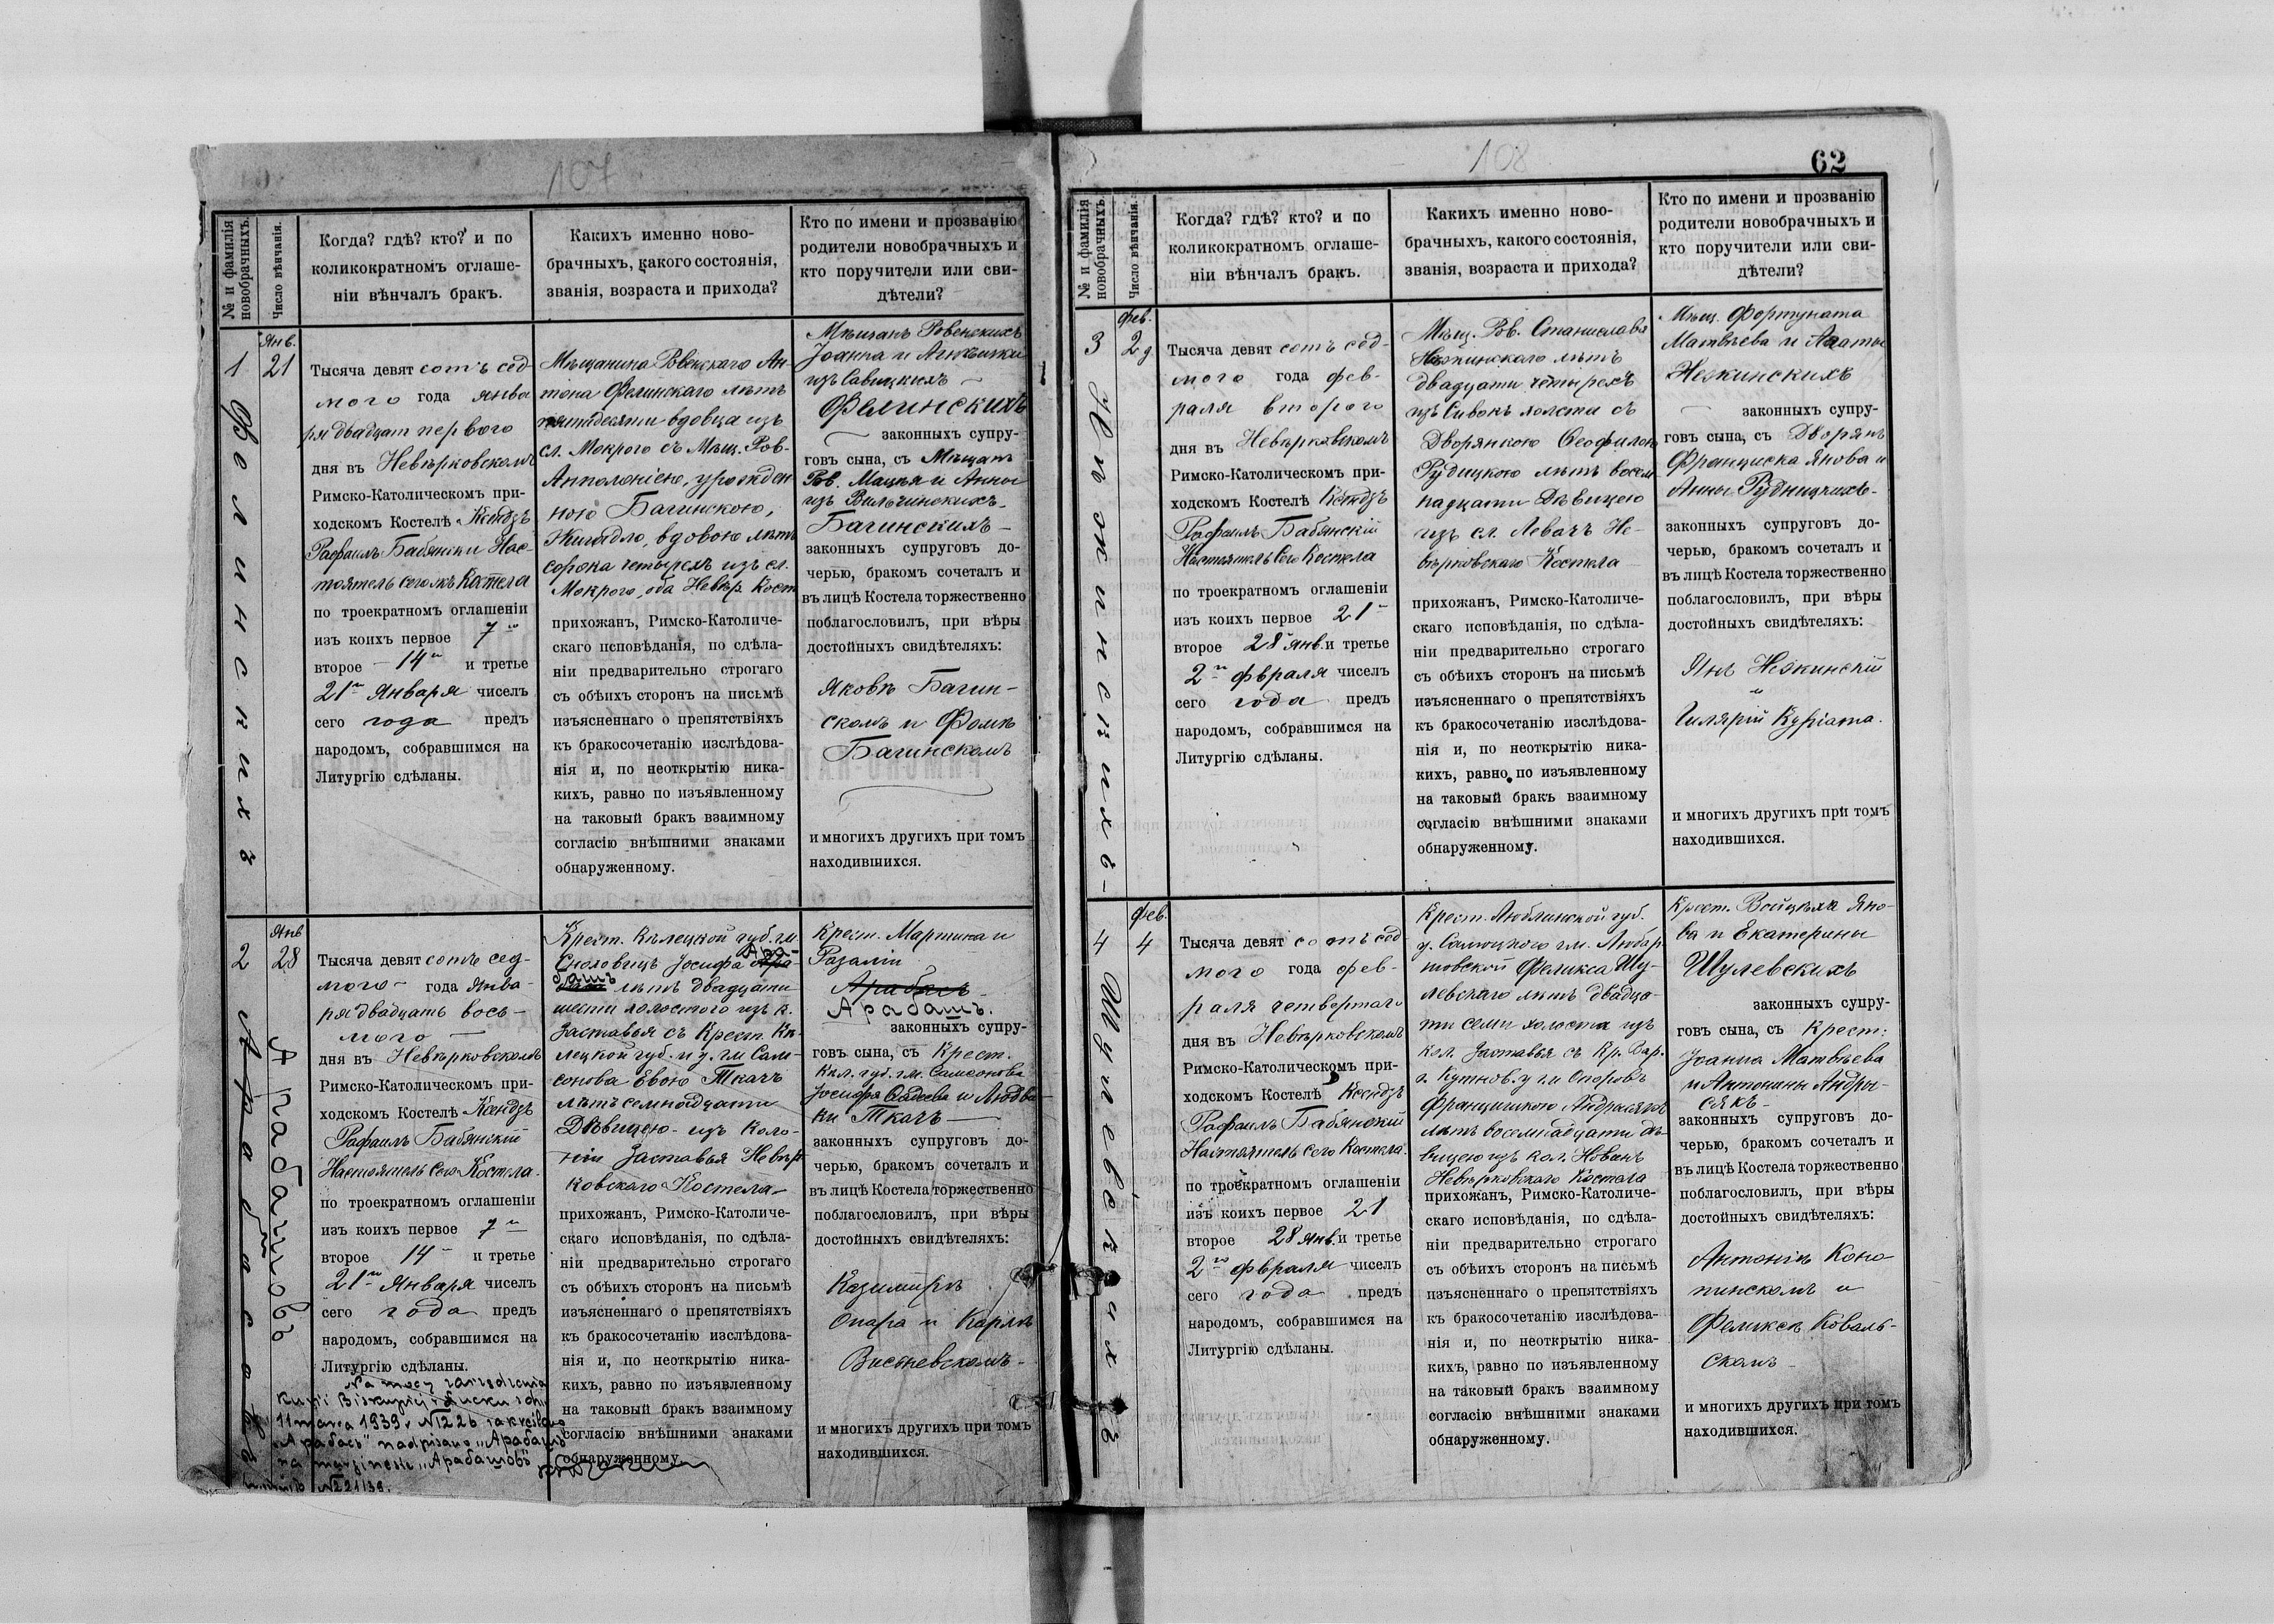 107
№ и фамилія новобрачныхъ.
Число вѣнчанія.
Когда? гдѣ? кто? и по
коликократномъ оглаше-
ніи вѣнчалъ бракъ.
Какихъ именно ново-
брачныхъ, какого состоянія,
званія, возраста и прихода?
Кто по имени и прозванію
родители новобрачныхъ и
кто поручители или сви-
дѣтели?
1
Фелинскихъ
Янв.
21
Тысяча девятсотъ сед-
мого года янва
ря двадцат первого
дня въ Невѣрковскомъ
Римско-Католическомъ при-
ходскомъ Костелѣ Ксендзъ
Рафаилъ Бабянски Нас-
тоятель сегожъ Костела
по троекратномъ оглашеніи
изъ коихъ первое 7го
второе 14го и третье
21го Января чиселъ
сего года предъ
народомъ, собравшимся на
Литургію сдѣланы.
Мѣщанина Ровенскаго Ан-
тона Фелинскаго лѣтъ
пятидесяти вдовца изъ
сл. Мокрого съ Мѣщ. Ров-
Апполоніею, урожден
ною Багинскою,
Жигадло, вдовою лѣтъ
сорока четырехъ изъ сл.
Мокрого, оба Невѣр. Кост
прихожанъ, Римско-Католиче-
скаго исповѣданія, по сдѣла-
ніи предварительно строгаго
съ обѣихъ сторонъ на письмѣ
изъясненнаго о препятствіяхъ
къ бракосочетанію изслѣдова-
нія и, по неоткрытію ника-
кихъ, равно по изъявленному
на таковый бракъ взаимному
согласію внѣшними знаками
обнаруженному.
Мѣщанъ Ровенскихъ
Іоанна и
изъ Савицкихъ
Фелинскихъ
законныхъ супру-
говъ сына, съ Мѣщанъ
Ров. Мацѣя и Анны
изъ Вильчинскихъ
Багинскихъ
законныхъ супруговъ до-
черью, бракомъ сочеталъ и
въ лицѣ Костела торжественно
поблагословилъ, при вѣры
достойныхъ свидѣтеляхъ:
Яковѣ Багин-
скомъ и Фомѣ
Багинскомъ
и многихъ другихъ при томъ
находившихся.
2
Арабасовъ
Арабашовъ
Янв
28
Тысяча девятсотъ сед-
мого года Янва-
ря двадцать вось-
мого
дня въ Невѣрковскомъ
Римско-Католическомъ при-
ходскомъ Костелѣ Ксендзъ
Рафаилъ Бабянскій
Настоятель Сего Костела.
по троекратномъ оглашеніи
изъ коихъ первое 7го
второе 14 и третье
21го Января чиселъ
сего года предъ
народомъ, собравшимся на
Литургію сдѣланы.
Na mocy zarządzenia
Kurji Biskupiej w Łucku z dnia
11 marca 1939 r № 1226 zakreślono
"Арабасъ" nadpisano "Арабашъ"
na marginesie "Арабашовъ"
№ 221/39.
Крест. Кѣлецкой губ. гм.
Сноховицъ Іосифа Ара-
башъ лѣтъ двадцати
шести холостого изъ к.
Заставья съ Крест. Кѣ-
лецкой губ. и у. гм Сам-
сонова Евою Ткачъ
лѣтъ семнадцати
Дѣвицею изъ Коло-
ніи Заставья Невѣр
ковскаго Костела
прихожанъ, Римско-Католиче-
скаго исповѣданія, по сдѣла-
ніи предварительно строгаго
съ обѣихъ сторонъ на письмѣ
изъясненнаго о препятствіяхъ
къ бракосочетанію изслѣдова-
нія и, по неоткрытію ника-
кихъ, равно по изъявленному
на таковый бракъ взаимному
согласію внѣшними знаками
обнаруженному.
Крест. Мартина и
Розаліи
Арабасъ
Арабашъ.
законныхъ супру-
говъ сына, съ Крест.
Кѣл. губ. гм. Самсонова
Іосифа и Людви
ки Ткачъ
законныхъ супруговъ до-
черью, бракомъ сочеталъ и
въ лицѣ Костела торжественно
поблагословилъ, при вѣры
достойныхъ свидѣтеляхъ:
Казимирѣ
Опара и Карлѣ
Висневскомъ
и многихъ другихъ при томъ
находившихся.
108
62
№ и фамилія новобрачныхъ.
Число вѣнчанія.
Когда? гдѣ? кто? и по
коликократномъ оглаше-
ніи вѣнчалъ бракъ.
Какихъ именно ново-
брачныхъ, какого состоянія,
званія, возраста и прихода?
Кто по имени и прозванію
родители новобрачныхъ и
кто поручители или сви-
дѣтели?
3
Фев.
2
Тысяча девятсотъ сед-
мого года фев-
раля второго
дня въ Невѣрковскомъ
Римско-Католическомъ при-
ходскомъ Костелѣ Ксендзъ
Рафаилъ Бабянскій
Настоятель Сего Костела
по троекратномъ оглашеніи
изъ коихъ первое 21
второе 28 янв. и третье
2го февраля чиселъ
сего года предъ
народомъ, собравшимся на
Литургію сдѣланы.
Мѣщ. Ров. Станислава
лѣтъ
двадцати четырехъ
изъ Сивокъ холоста съ
Дворянкою Теофилою
Рудницкою лѣтъ восем
надцати Дѣвицею
изъ сл. Левачъ Не-
вѣрковскаго Костела
прихожанъ, Римско-Католиче-
скаго исповѣданія, по сдѣла-
ніи предварительно строгаго
съ обѣихъ сторонъ на письмѣ
изъясненнаго о препятствіяхъ
къ бракосочетанію изслѣдова-
нія и, по неоткрытію ника-
кихъ, равно по изъявленному
на таковый бракъ взаимному
согласію внѣшними знаками
обнаруженному.
Мѣщ. Фортуната
Матвѣева и Агаты
законныхъ супру-
говъ сына, съ Дворянъ
Франциска Янова и
Анны Рудницкихъ
законныхъ супруговъ до-
черью, бракомъ сочеталъ и
въ лицѣ Костела торжественно
поблагословилъ, при вѣры
достойныхъ свидѣтеляхъ:
Янъ
и
Гилярій Куріата.
и многихъ другихъ при томъ
находившихся.
4
Шулевскихъ
Фев.
4
Тысяча девятсотъ сед
мого года фев-
раля четвертаго
дня въ Невѣрковскомъ
Римско-Католическомъ при-
ходскомъ Костелѣ Ксендзъ
Рафаилъ Бабянскій
Настоятель сего Костела.
по троекратномъ оглашеніи
изъ коихъ первое 21
второе 28 янв. и третье
2го февраля чиселъ
сего года предъ
народомъ, собравшимся на
Литургію сдѣланы.
Крест. Люблинской губ.
гм. Любар
товской Феликса Шу-
левскаго лѣтъ двадца-
ти семи холоста изъ
кол. Заставья съ Кр. Вар.
г. Кутнов. у гм Опоровъ
Францишкою Андрысякъ
лѣтъ восемнадцати дѣ-
вицею изъ кол.
Невѣрковскаго Костела
прихожанъ, Римско-Католиче-
скаго исповѣданія, по сдѣла-
ніи предварительно строгаго
съ обѣихъ сторонъ на письмѣ
изъясненнаго о препятствіяхъ
къ бракосочетанію изслѣдова-
нія и, по неоткрытію ника-
кихъ, равно по изъявленному
на таковый бракъ взаимному
согласію внѣшними знаками
обнаруженному.
Крест. Войцѣха Яно-
ва и Екатерины
Шулевскихъ
законныхъ супру-
говъ сына, съ Крест:
Іоанна Матвѣева
и Антонины Андры-
сякъ
законныхъ супруговъ до-
черью, бракомъ сочеталъ и
въ лицѣ Костела торжественно
поблагословилъ, при вѣры
достойныхъ свидѣтеляхъ:
Антоніѣ Коно
пинскомъ и
Феликсѣ Коваль-
скомъ
и многихъ другихъ при томъ
находившихся.